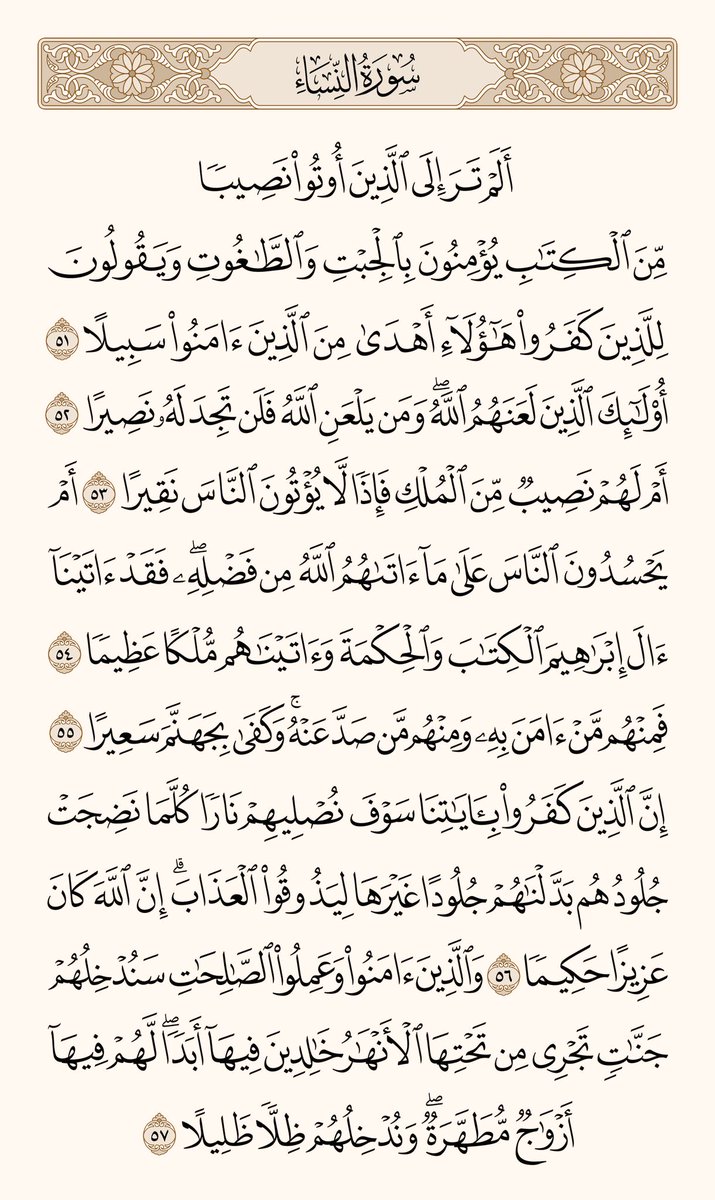 سُورَةُ النِّسَاءِ
أَلَمْ تَرَ إِلَى ٱلَّذِينَ أُوتُوا۟ نَصِيبًا
مِّنَ ٱلْكِتَـٰبِ يُؤْمِنُونَ بِٱلْجِبْتِ وَٱلطَّـٰغُوتِ وَيَقُولُونَ
لِلَّذِينَ كَفَرُوا۟ هَـٰٓؤُلَآءِ أَهْدَىٰ مِنَ ٱلَّذِينَ ءَامَنُوا۟ سَبِيلًا ٥١
أُو۟لَـٰٓئِكَ ٱلَّذِينَ لَعَنَهُمُ ٱللَّهُ ۖ وَمَن يَلْعَنِ ٱللَّهُ فَلَن تَجِدَ لَهُۥ نَصِيرًا ٥٢
أَمْ لَهُمْ نَصِيبٌ مِّنَ ٱلْمُلْكِ فَإِذًا لَّا يُؤْتُونَ ٱلنَّاسَ نَقِيرًا ٥٣ أَمْ
يَحْسُدُونَ ٱلنَّاسَ عَلَىٰ مَآ ءَاتَىٰهُمُ ٱللَّهُ مِن فَضْلِهِۦ ۖ فَقَدْ ءَاتَيْنَآ
ءَالَ إِبْرَٰهِيمَ ٱلْكِتَـٰبَ وَٱلْحِكْمَةَ وَءَاتَيْنَـٰهُم مُّلْكًا عَظِيمًا ٥٤
فَمِنْهُم مَّنْ ءَامَنَ بِهِۦ وَمِنْهُم مَّن صَدَّ عَنْهُ ۚ وَكَفَىٰ بِجَهَنَّمَ سَعِيرًا ٥٥
إِنَّ ٱلَّذِينَ كَفَرُوا۟ بِـَٔايَـٰتِنَا سَوْفَ نُصْلِيهِمْ نَارًا كُلَّمَا نَضِجَتْ
جُلُودُهُم بَدَّلْنَـٰهُمْ جُلُودًا غَيْرَهَا لِيَذُوقُوا۟ ٱلْعَذَابَ ۗ إِنَّ ٱللَّهَ كَانَ
عَزِيزًا حَكِيمًا ٥٦ وَٱلَّذِينَ ءَامَنُوا۟ وَعَمِلُوا۟ ٱلصَّـٰلِحَـٰتِ سَنُدْخِلُهُمْ
جَنَّـٰتٍ تَجْرِى مِن تَحْتِهَا ٱلْأَنْهَـٰرُ خَـٰلِدِينَ فِيهَآ أَبَدًا ۖ لَّهُمْ فِيهَآ
أَزْوَٰجٌ مُّطَهَّرَةٌ ۖ وَنُدْخِلُهُمْ ظِلًّا ظَلِيلًا ٥٧